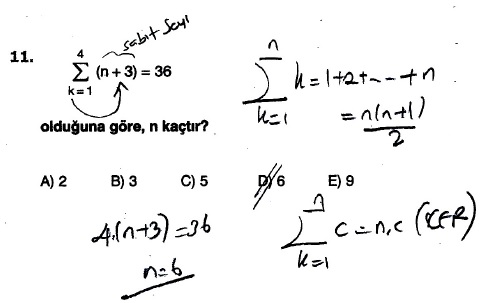 sabit sayı
11. 4
∑ (n + 3) = 36
k = 1
olduğuna göre, n kaçtır?
A) 2 B) 3 C) 5 D) 6 E) 9
4.(n+3) = 36
n = 6
n
∑ k = 1+2+---+n
k=1
= n(n+1)
2
n
∑ c = n.c (c∈R)
k=1